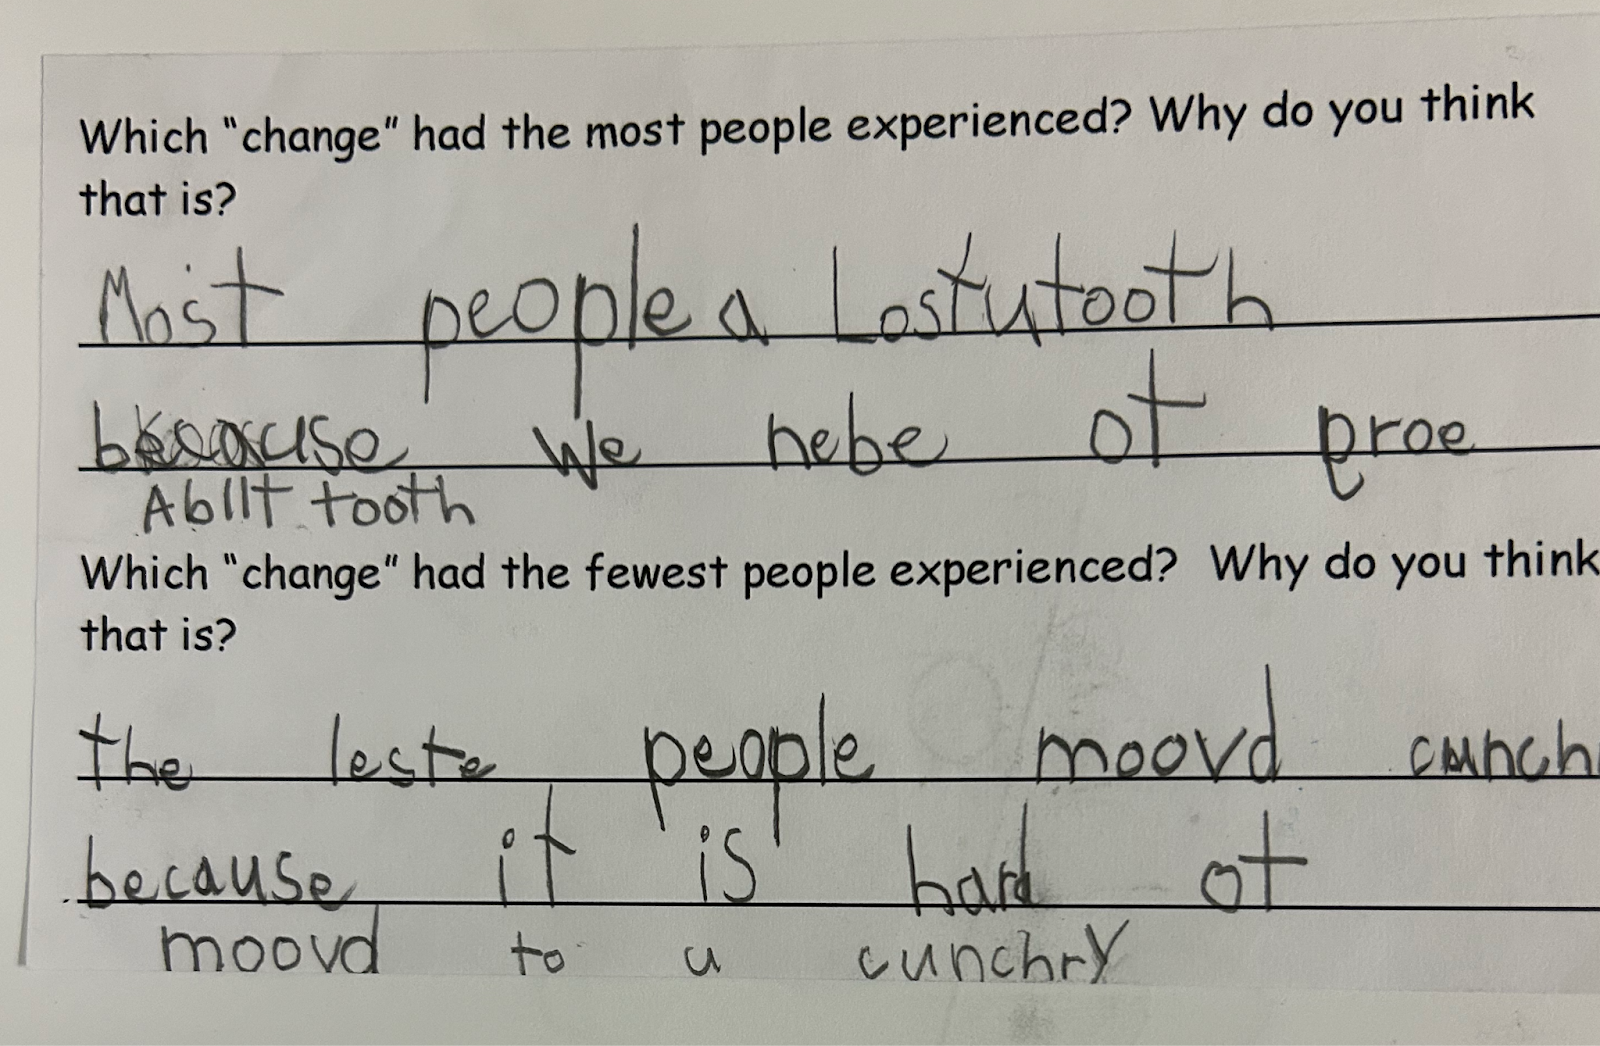 Which "change" had the most people experienced? Why do you think
that is?
Most people a Lostutooth
because we nebe ot proe
Abllt tooth
Which "change" had the fewest people experienced? Why do you think
that is?
the leste people moovd cunch
because it is hard ot
moovd to u cunchry